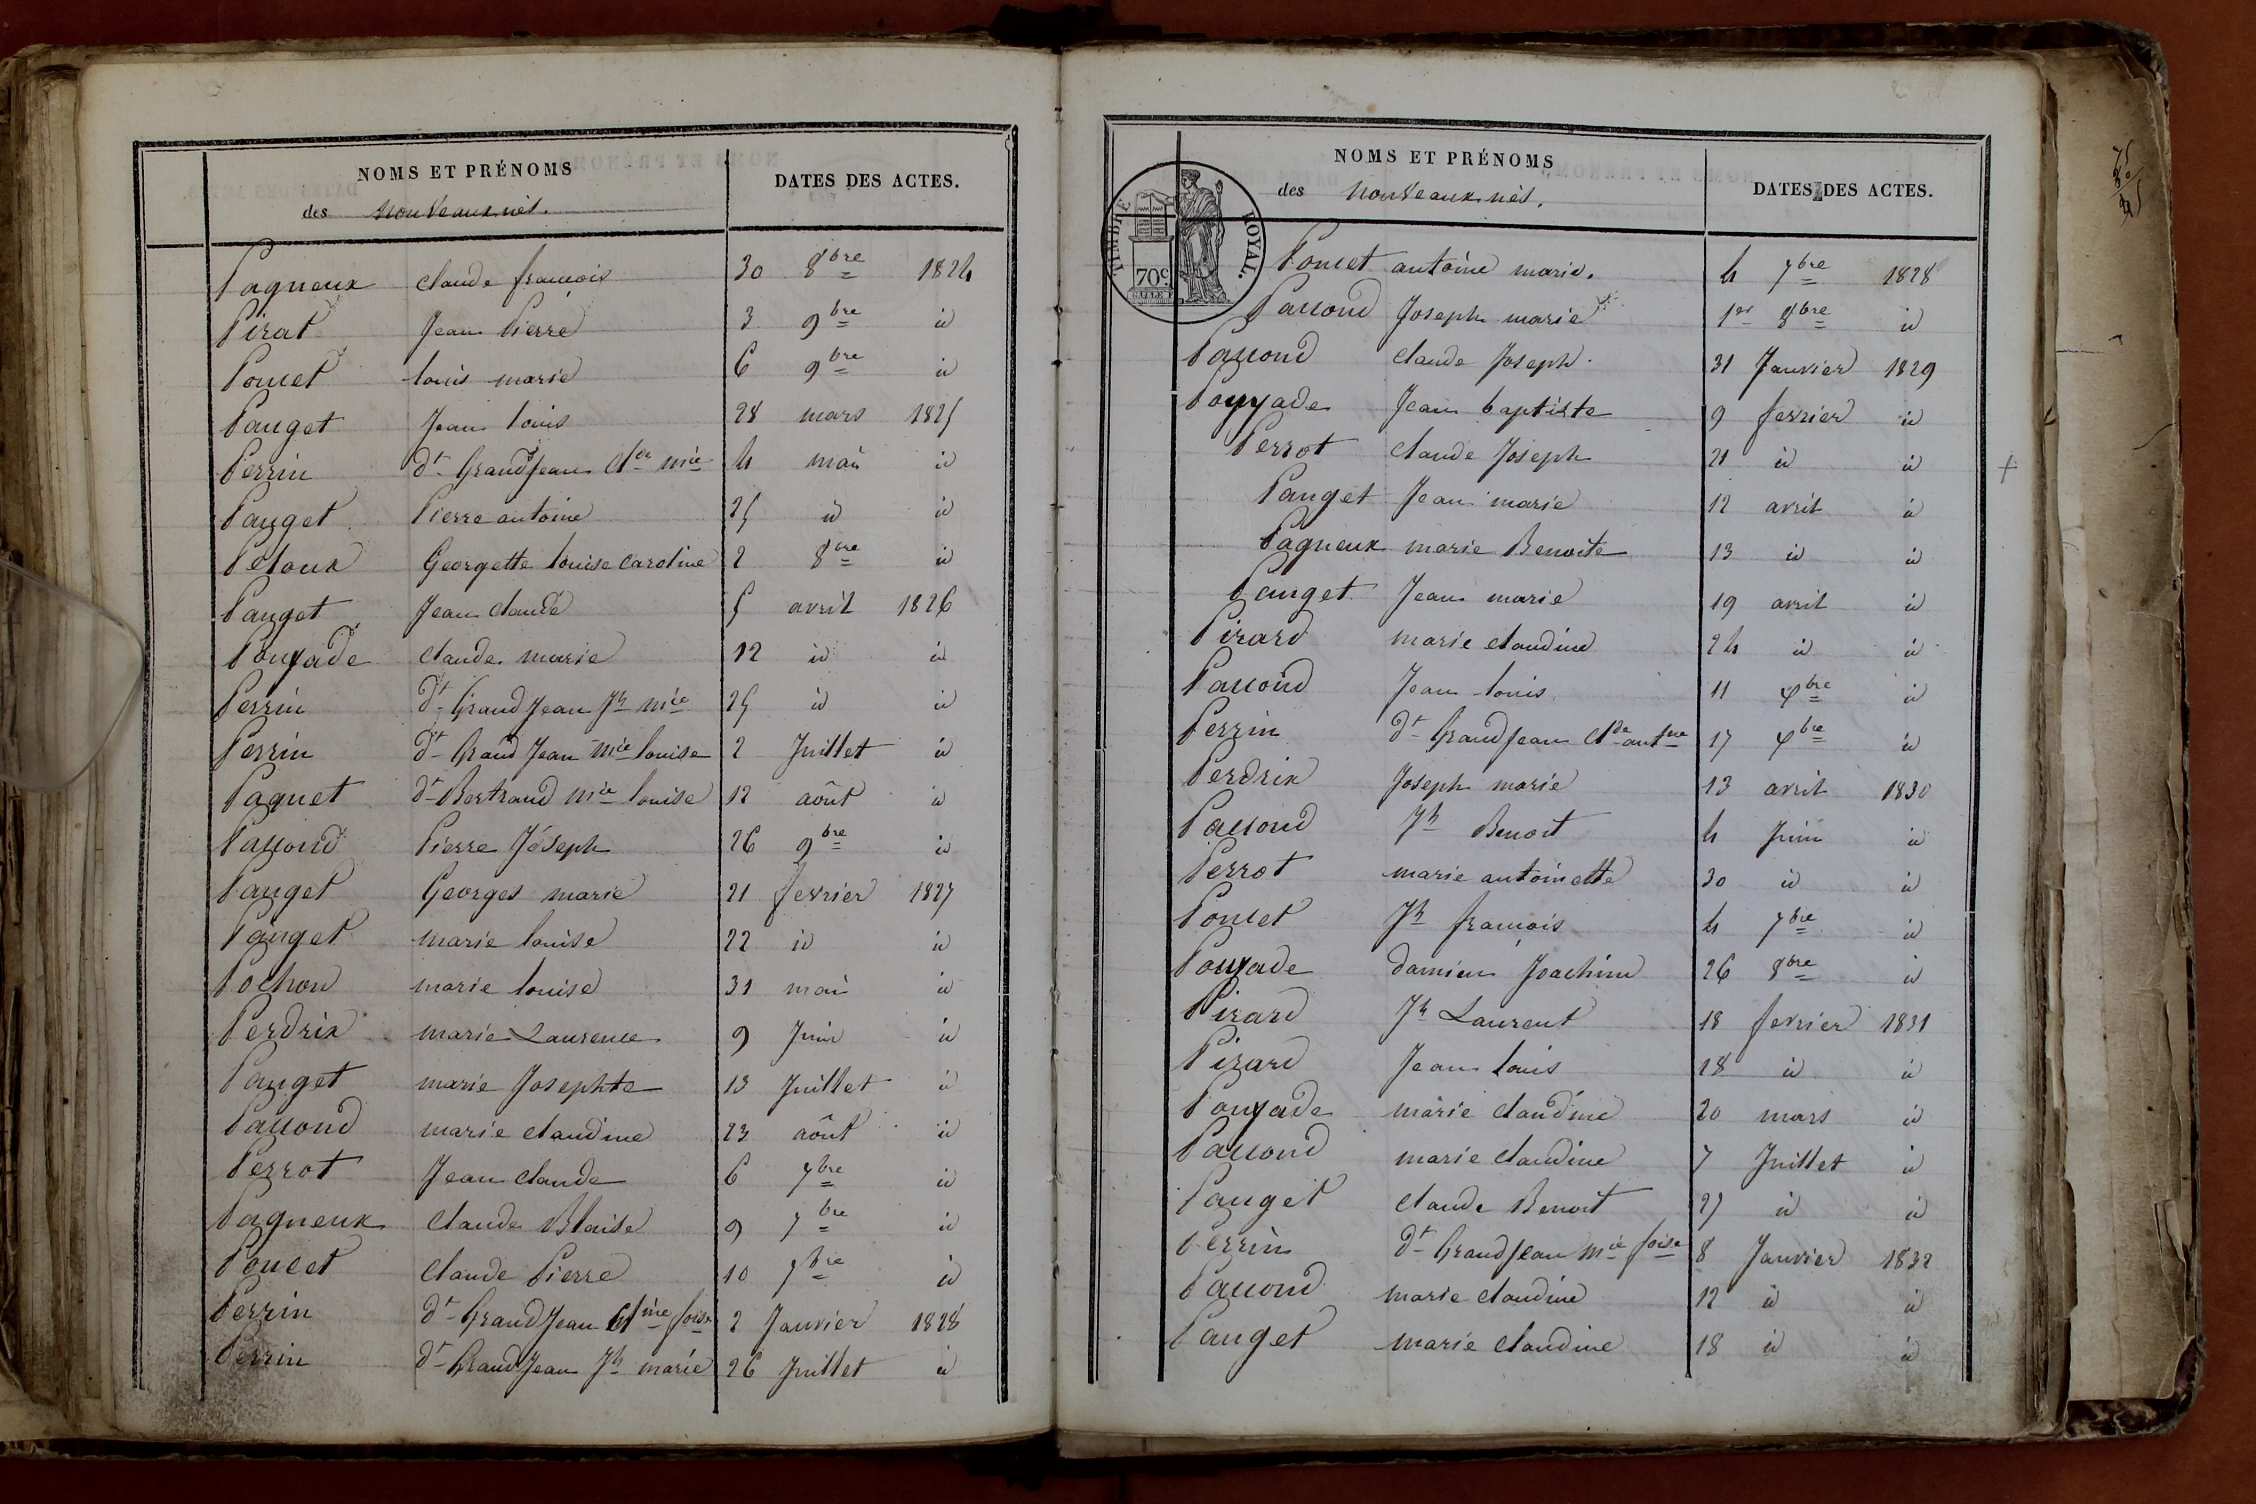 NOMS ET PRÉNOMS
DATES DES ACTES.
des nouveaux nés.
Pagneux claude françois 30 8bre 1824
Pirat Jean Pierre 3 9bre id
Poncet louis marie 6 9bre id
Pauget Jean louis 28 mars 1825
Perrin dt Grandjean Cde mie 4 mai id
Pauget Pierre antoine 25 id id
Petoux Georgette louise caroline 2 8bre id
Pauget Jean claude 5 avril 1826
Pouyade claude marie 12 id id
Perrin dt Grand Jean Jh mie 25 id id
Perrin dt Grand Jean mie louise 2 Juillet id
Paquet dt Bertrand mie louise 12 août id
Paccoud Pierre Joseph 26 9bre id
Pauget Georges marie 21 fevrier 1827
Pauget marie louise 22 id id
Pochon marie louise 31 mai id
Perdrix marie Laurence 9 Juin id
Pauget marie Josephte 13 Juillet id
Paccoud marie claudine 23 août id
Perrot Jean claude 6 7bre id
Pagneux claude Blaise 9 7bre id
Poncet Claude Pierre 10 7bre id
Perrin dt Grand Jean Cline foise 2 Janvier 1828
Perrin dt Grand Jean Jh marie 26 Juillet id
NOMS ET PRÉNOMS
DATES DES ACTES.
des nouveaux nés.
TIMBRE ROYAL.
70c
Poncet antoine marie. 4 7bre 1828
Paccoud Joseph marie 1er 8bre id
Paccoud claude Joseph 31 Janvier 1829
Pouyade Jean baptiste 9 fevrier id
Perrot claude Joseph 21 id id
Pauget Jean marie 12 avril id
Pagneux marie Benoite 13 id id
Pauget Jean marie 19 avril id
Pirard marie claudine 24 id id
Paccoud Jean louis 11 Xbre id
Perrin dt Grand Jean Cde antne 17 Xbre id
Perdrix Joseph marie 13 avril 1830
Paccoud Jh Benoit 4 Juin id
Perrot marie antoinette 30 id id
Poncet Jh françois 4 7bre id
Pouyade damien Joachim 26 8bre id
Pirard Jh Laurent 18 fevrier 1831
Pirard Jean louis 18 id id
Pouyade marie claudine 20 mars id
Paccoud marie claudine 7 Juillet id
Pauget claude Benoit 27 id id
Perrin dt Grand Jean mie foise 8 Janvier 1832
Paccoud marie claudine 12 id id
Pauget marie claudine 18 id id